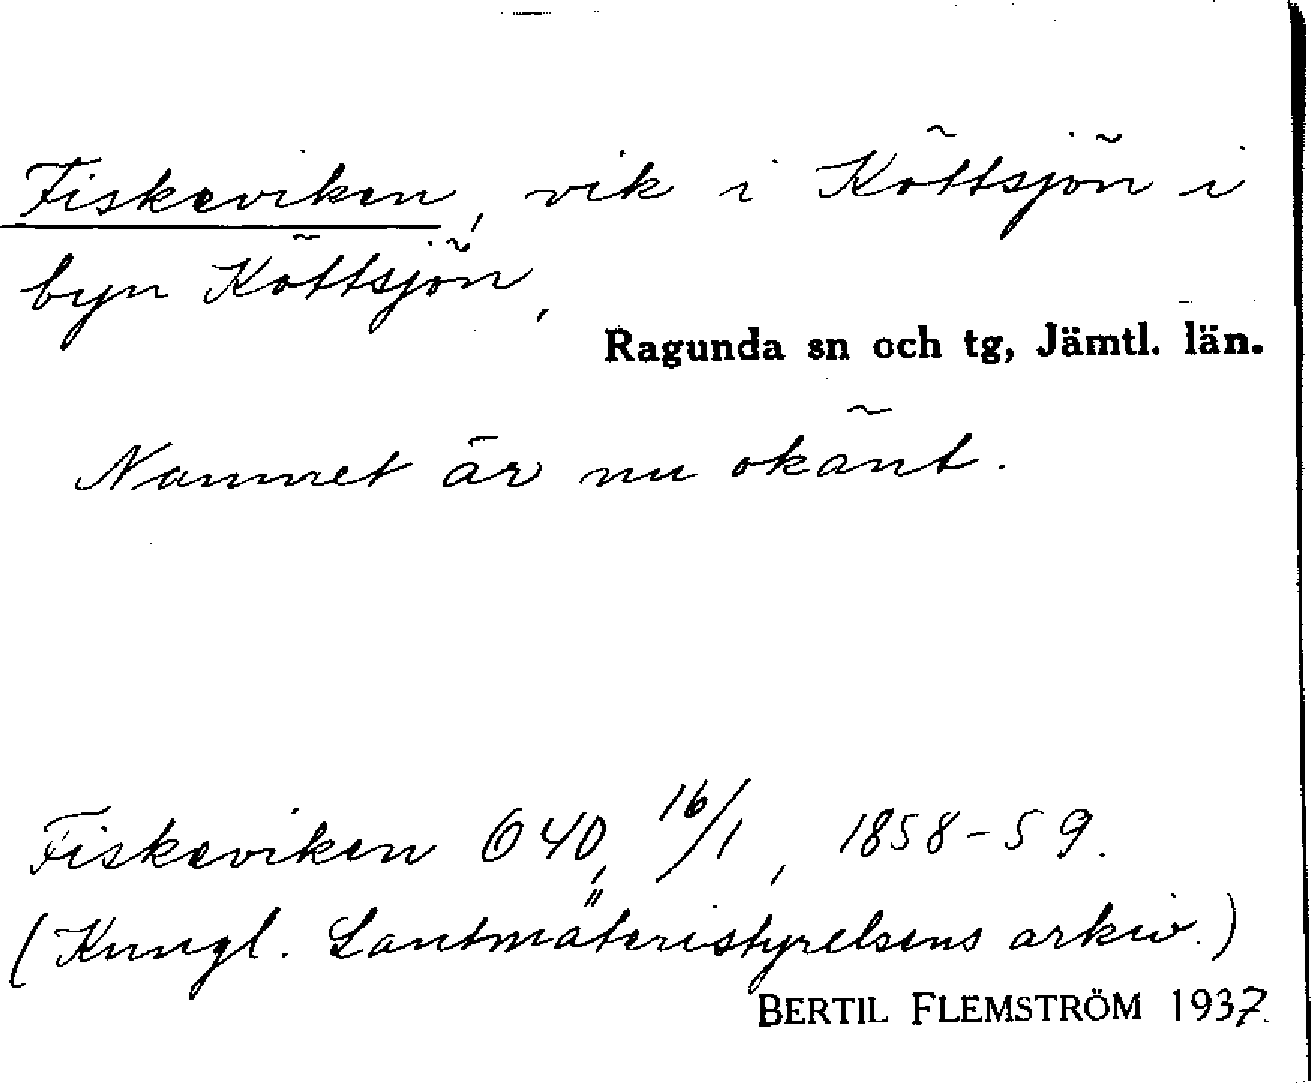 Fiskeviken, vik i Köttsjön i
byn Köttsjön,
Ragunda sn och tg, Jämtl. län.
Namnet är nu okänt.
Fiskeviken O 40, 16/1, 1858-59.
(Kungl. Lantmäteristyrelsens arkiv.)
BERTIL FLEMSTRÖM 1937.